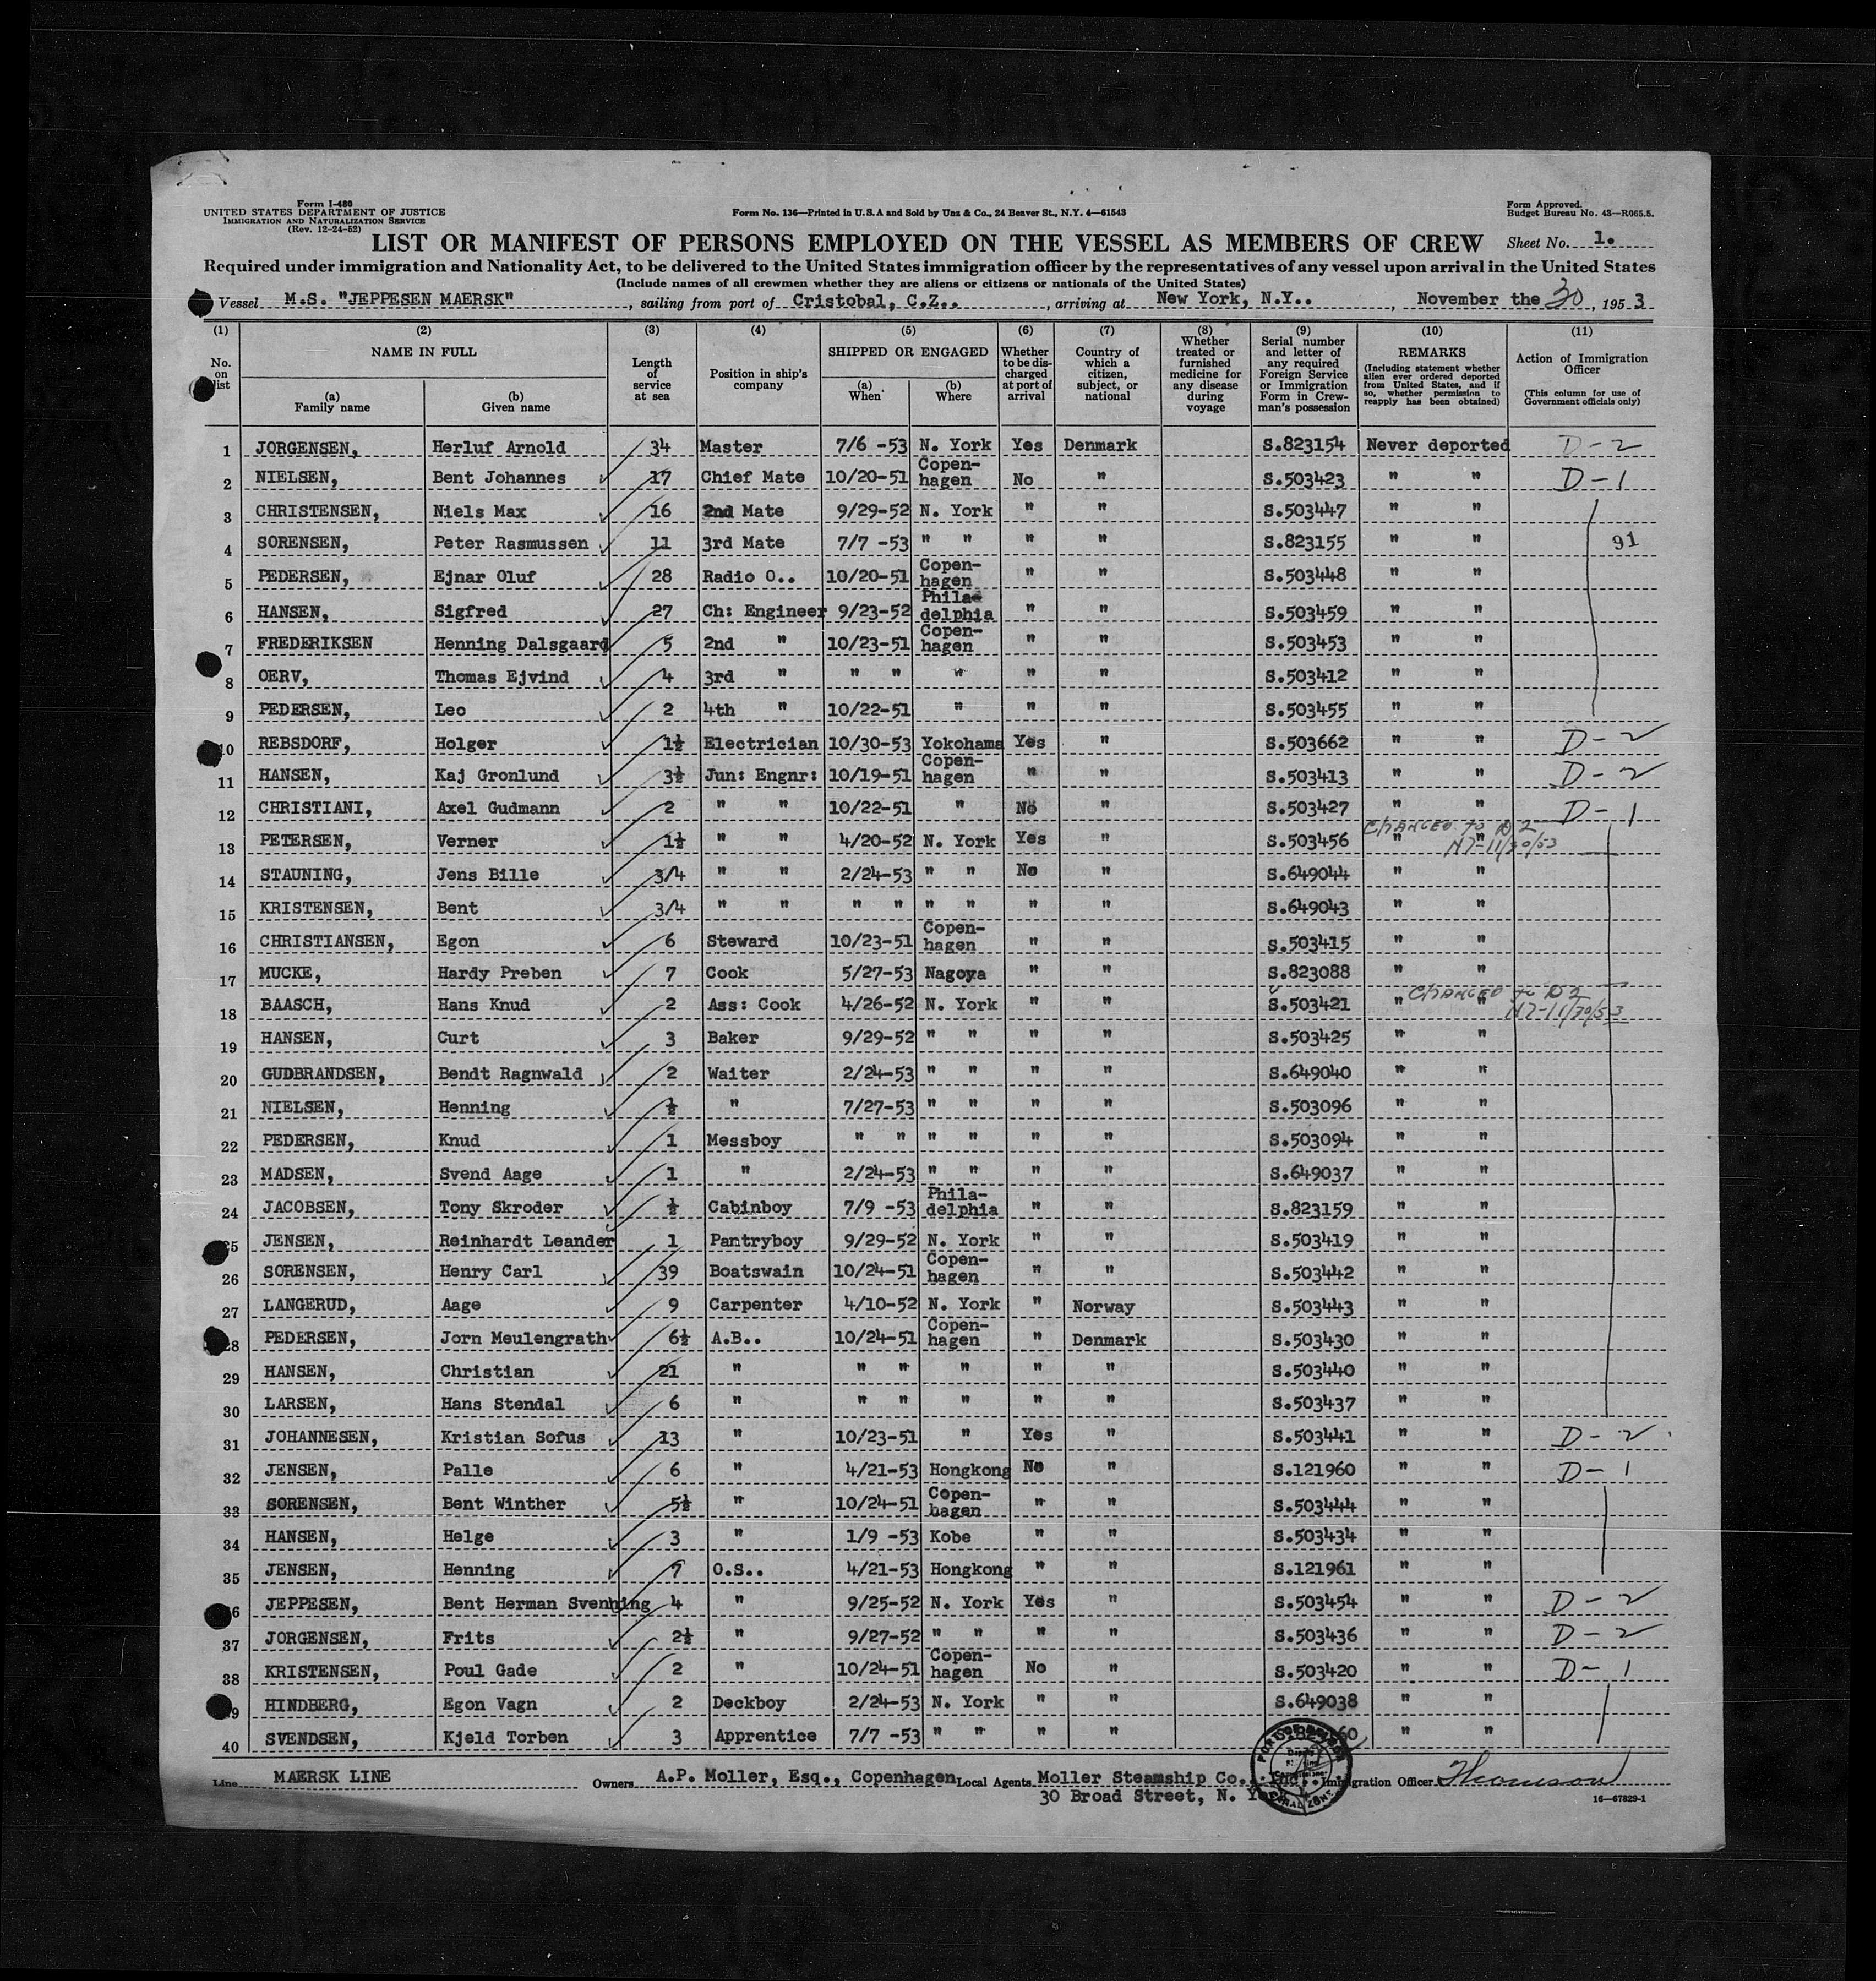 Form I-480
UNITED STATES DEPARTMENT OF JUSTICE
IMMIGRATION AND NATURALIZATION SERVICE
(Rev. 12-24-52)
Form No. 136—Printed in U.S.A and Sold by Unz & Co., 24 Beaver St., N.Y. 4—61543
Form Approved.
Budget Bureau No. 43—R065.5.
LIST OR MANIFEST OF PERSONS EMPLOYED ON THE VESSEL AS MEMBERS OF CREW Sheet No. 1.
Required under immigration and Nationality Act, to be delivered to the United States immigration officer by the representatives of any vessel upon arrival in the United States
(Include names of all crewmen whether they are aliens or citizens or nationals of the United States)
Vessel M.S. "JEPPESEN MAERSK", sailing from port of Cristobal, C.Z.., arriving at New York, N.Y.., November the 30, 1953
(1) No. on list
(2) NAME IN FULL
(a) Family name
(b) Given name
(3) Length of service at sea
(4) Position in ship's company
(5) SHIPPED OR ENGAGED
(a) When
(b) Where
(6) Whether to be discharged at port of arrival
(7) Country of which a citizen, subject, or national
(8) Whether treated or furnished medicine for any disease during voyage
(9) Serial number and letter of any required Foreign Service or Immigration Form in Crewman's possession
(10) REMARKS (Including statement whether alien ever ordered deported from United States, and if so, whether permission to reapply has been obtained)
(11) Action of Immigration Officer (This column for use of Government officials only)
1 JORGENSEN, Herluf Arnold 34 Master 7/6 -53 N. York Yes Denmark S.823154 Never deported D-2
2 NIELSEN, Bent Johannes 17 Chief Mate 10/20-51 Copen-hagen No " S.503423 " " D-1
3 CHRISTENSEN, Niels Max 16 2nd Mate 9/29-52 N. York " " S.503447 " "
4 SORENSEN, Peter Rasmussen 11 3rd Mate 7/7 -53 " " " " S.823155 " " 91
5 PEDERSEN, Ejnar Oluf 28 Radio O.. 10/20-51 Copen-hagen " " S.503448 " "
6 HANSEN, Sigfred 27 Ch: Engineer 9/23-52 Phila-delphia " " S.503459 " "
7 FREDERIKSEN Henning Dalsgaard 5 2nd " 10/23-51 Copen-hagen " " S.503453 " "
8 OERV, Thomas Ejvind 4 3rd " " " " " " S.503412 " "
9 PEDERSEN, Leo 2 4th " 10/22-51 " " " S.503455 " "
10 REBSDORF, Holger 1½ Electrician 10/30-53 Yokohama Yes " S.503662 " " D-2
11 HANSEN, Kaj Gronlund 3½ Jun: Engnr: 10/19-51 Copen-hagen " " S.503413 " " D-2
12 CHRISTIANI, Axel Gudmann 2 " " 10/22-51 " No " S.503427 " " D-1
CHANGED to D 2
13 PETERSEN, Verner 1½ " " 4/20-52 N. York Yes " S.503456 " " 11/30/53
14 STAUNING, Jens Bille 3/4 " " 2/24-53 " " No " S.649044 " "
15 KRISTENSEN, Bent 3/4 " " " " " " " " S.649043 " "
16 CHRISTIANSEN, Egon 6 Steward 10/23-51 Copen-hagen " " S.503415 " "
17 MUCKE, Hardy Preben 7 Cook 5/27-53 Nagoya " " S.823088 " "
18 BAASCH, Hans Knud 2 Ass: Cook 4/26-52 N. York " " S.503421 " " CHANGED to D 2
11/30/53
19 HANSEN, Curt 3 Baker 9/29-52 " " " " S.503425 " "
20 GUDBRANDSEN, Bendt Ragnwald 2 Waiter 2/24-53 " " " " S.649040 " "
21 NIELSEN, Henning ½ " 7/27-53 " " " " S.503096 " "
22 PEDERSEN, Knud 1 Messboy " " " " " " S.503094 " "
23 MADSEN, Svend Aage 1 " 2/24-53 " " " " S.649037 " "
24 JACOBSEN, Tony Skroder ½ Cabinboy 7/9 -53 Phila-delphia " " S.823159 " "
25 JENSEN, Reinhardt Leander 1 Pantryboy 9/29-52 N. York " " S.503419 " "
26 SORENSEN, Henry Carl 39 Boatswain 10/24-51 Copen-hagen " " S.503442 " "
27 LANGERUD, Aage 9 Carpenter 4/10-52 N. York " Norway S.503443 " "
28 PEDERSEN, Jorn Meulengrath 6½ A.B.. 10/24-51 Copen-hagen " Denmark S.503430 " "
29 HANSEN, Christian 21 " " " " " " S.503440 " "
30 LARSEN, Hans Stendal 6 " " " " " " S.503437 " "
31 JOHANNESEN, Kristian Sofus 13 " 10/23-51 " Yes " S.503441 " " D-2
32 JENSEN, Palle 6 " 4/21-53 Hongkong No " S.121960 " " D-1
33 SORENSEN, Bent Winther 5½ " 10/24-51 Copen-hagen " " S.503444 " "
34 HANSEN, Helge 3 " 1/9 -53 Kobe " " S.503434 " "
35 JENSEN, Henning 7 O.S.. 4/21-53 Hongkong " " S.121961 " "
36 JEPPESEN, Bent Herman Svenning 4 " 9/25-52 N. York Yes " S.503454 " " D-2
37 JORGENSEN, Frits 2½ " 9/27-52 " " " " S.503436 " " D-2
38 KRISTENSEN, Poul Gade 2 " 10/24-51 Copen-hagen No " S.503420 " " D-1
39 HINDBERG, Egon Vagn 2 Deckboy 2/24-53 N. York " " S.649038 " "
40 SVENDSEN, Kjeld Torben 3 Apprentice 7/7 -53 " " " " 60 " "
Line MAERSK LINE Owners A.P. Moller, Esq., Copenhagen Local Agents Moller Steamship Co., Inc. Immigration Officer Thomson
30 Broad Street, N. Y.
16—67829-1